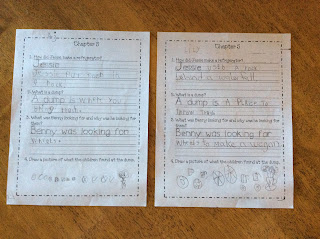 Chapter 5
1. How did Jessie make a refrigerator?
Jessie
2. What is a dump?
A dump is where you
3. What was Benny looking for and why was he looking for
them?
Benny was looking for
wheels.
4. Draw a picture of what the children found at the dump.
Chapter 5
1. How did Jessie make a refrigerator?
Jessie
behind a waterfall.
2. What is a dump?
A dump is A Place To
3. What was Benny looking for and why was he looking for
them?
Benny was looking for
wheels to make a wagon
4. Draw a picture of what the children found at the dump.